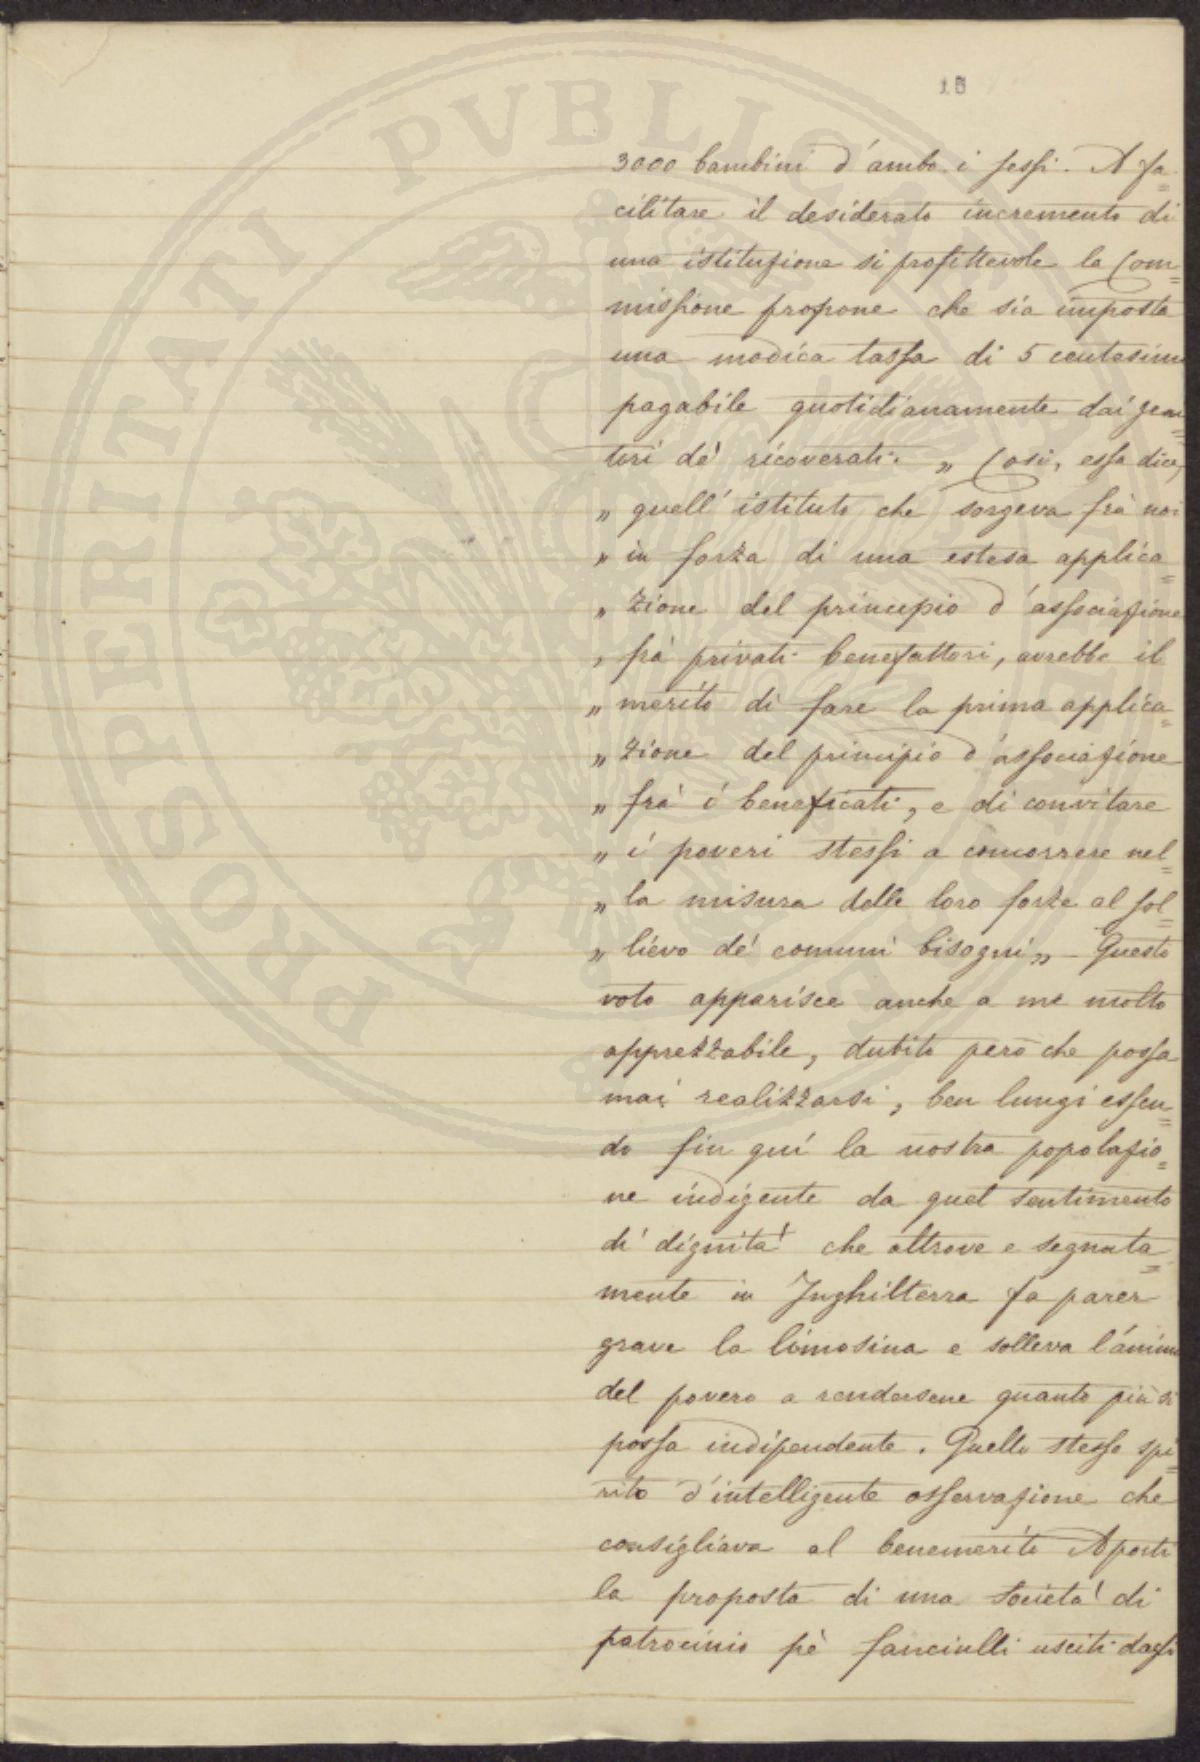 15
3000 bambini d'ambo i sessi. A fa=
cilitare il desiderato incremento di
una istituzione si profittevole la Com=
missione propone che sia imposta
una modica tassa di 5 centesimi
pagabile quotidianamente dai geni=
tori de' ricoverati. „ Così, essa dice,
„ quell'istituto che sorgeva frà noi
„ in forza di una estesa applica=
„ zione del principio d'associazione
„ frà privati benefattori, avrebbe il
„ merito di fare la prima applica=
„ zione del principio d'associazione
„ frà i beneficati, e di convitare
„ i poveri stessi a concorrere nel=
„ la misura delle loro forze al sol=
„ lievo de' comuni bisogni „ - Questo
voto apparisce anche a me molto
apprezzabile, dubito però che possa
mai realizzarsi, ben lungi essen=
do fin quì la nostra popolazio=
ne indigente da quel sentimento
di dignita' che altrove e segnata=
mente in Inghilterra fa parer
grave la limosina e solleva l'animo
del povero a rendersene quanto più si
possa indipendente. Quello stesso spi=
rito d'intelligente osservazione che
consigliava al benemerito Aporti
la proposta di una Societa' di
patrocinio pè fanciulli usciti dagli
PROSPERITATI PVBLICAE